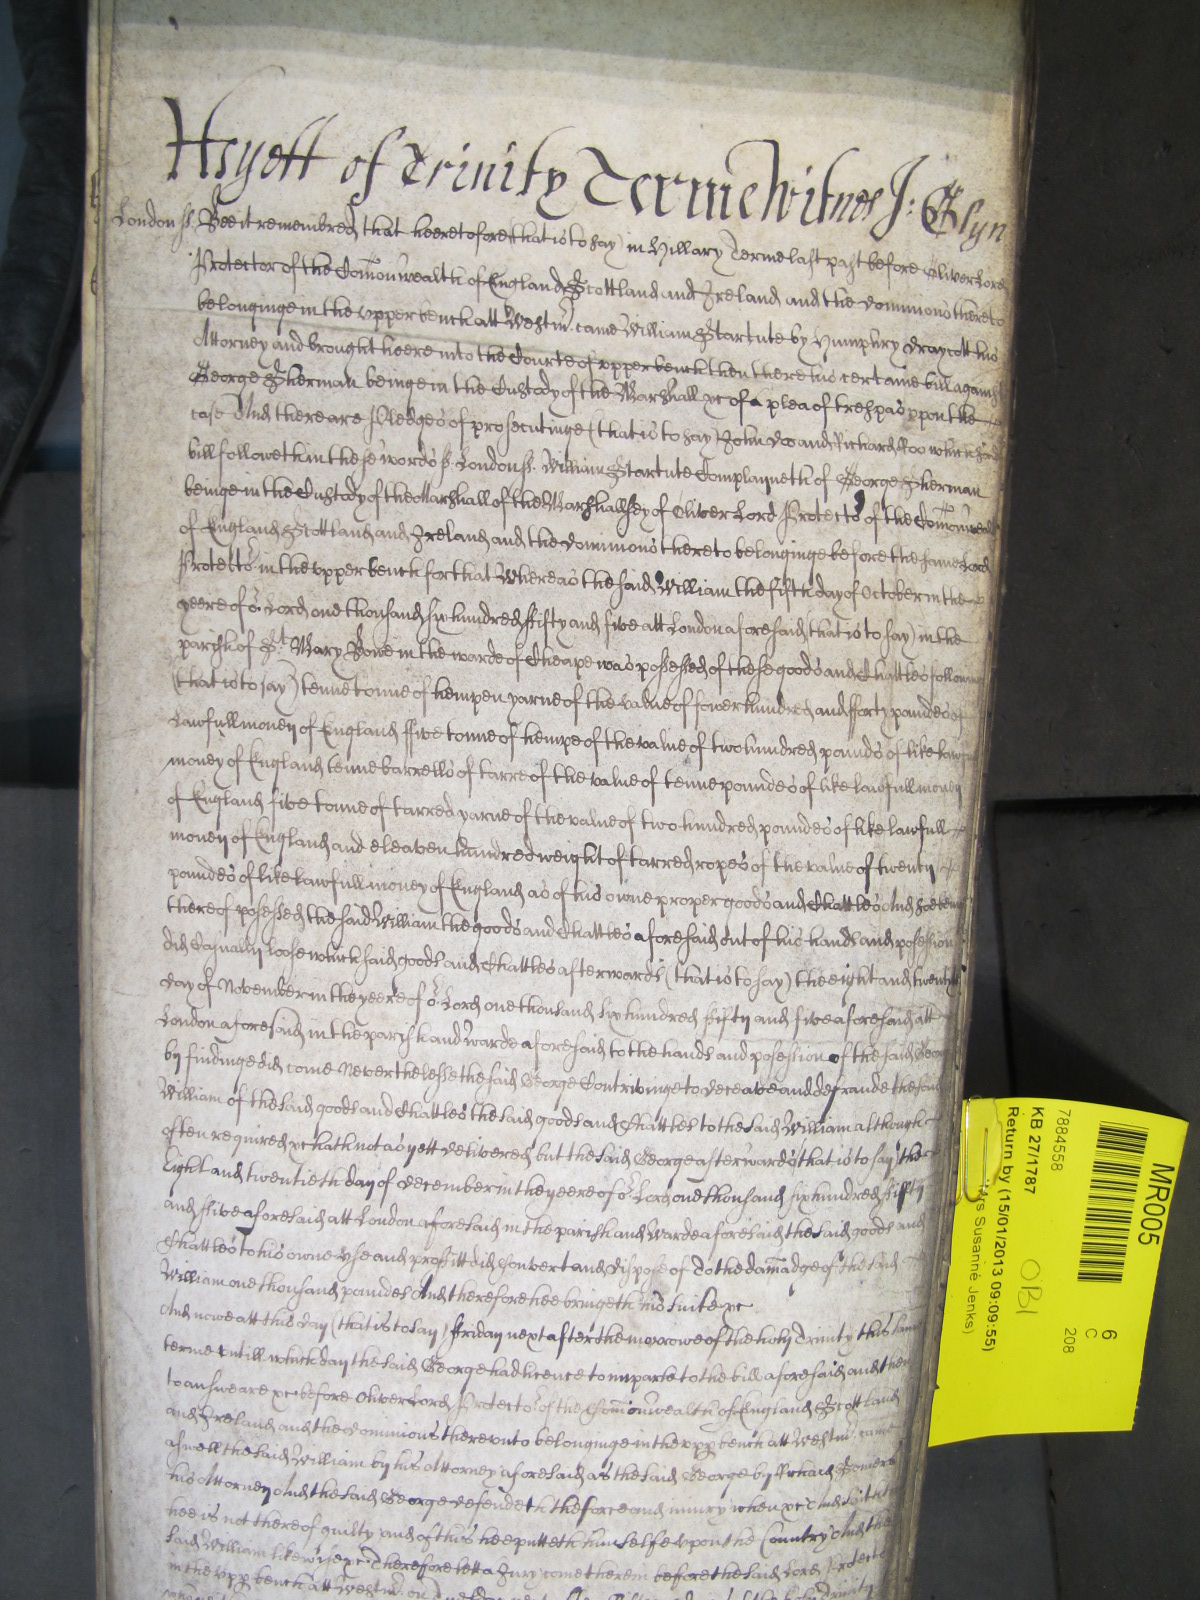 Hyett of Trinity Terme Witnes J: Glyn
London ss. Bee it remembred that heeretofore (that is to say) in Hillary Terme last past before Oliver Lord
Protector of the Comonwealth of England Scottland and Ireland and the dominions thereto
belonginge in the upper bench att Westmr. came William Startute by Humphry Draycott his
Attorney and brought heere into the Courte of upper bench then there his certaine bill against
George Sherman beinge in the Custody of the Marshall &c of a plea of trespas upon the
case And there are Pledges of prosecutinge (that is to say) John Doo and Richard Roo which said
bill followeth in these words ss. London ss. William Startute Complayneth of George Sherman
beinge in the Custody of the Marshall of the Marshallsey of Oliver Lord Protector of the Comonwealth
of England Scottland and Ireland and the dominions thereto belonginge before the same Lord
Protector in the upper bench for that Whereas the said William the fifth day of October in the
yeere of or Lord one thousand six hundred fifty and five att London aforesaid (that is to say) in the
parish of St Mary Bowe in the warde of Cheape was possessed of these goods and Chattles following
(that is to say) tenne tonne of hempen yarne of the value of fower hundred and fforty poundes of
lawfull money of England ffive tonne of hempe of the value of two hundred pounds of like lawfull
money of England tenne barrells of tarre of the value of tenne poundes of like lawfull money
of England five tonne of tarred yarne of the value of two hundred poundes of like lawfull
money of England and eleaven hundred weight of tarred ropes of the value of twenty
poundes of like lawfull money of England as of his owne proper goods and Chattles And soe being
thereof posessed the said William the goods and Chattles aforesaid out of his hands and posession
did Casually loose which said goods and Chattles afterwards (that is to say) the eight and twentith
day of November in the yeere of or Lord one thousand six hundred fifty and five aforesaid att
London aforesaid in the parish and warde aforesaid to the hands and posession of the said George
by findinge did come Neverthelesse the said George Contrivinge to deceave and defraude the said
William of the said goods and Chattles the said goods and Chattles to the said William although
often required &c hath not as yett delivered but the said George afterwards that is to say the
Eight and twentieth day of December in the yeere of or Lord one thousand six hundred fifty
and ffive aforesaid att London aforesaid in the parish and warde aforesaid the said goods and
Chattles to his owne use and profitt did Convert and dispose of To the damadge of the said
William one thousand poundes And therefore hee bringeth his suite &c
And nowe att this day (that is to say) Friday next after the morrowe of the holy Trinity this same
terme untill which day the said George had licence to imparle to the bill aforesaid and then
to answeare &c before Oliver Lord Protector of the Comonwealth of England Scottland
and Ireland and the dominions thereunto belonginge in the upp bench att Westmr. came
aswell the said William by his Attorney aforesaid as the said George by Richard Somers
his Attorney And the said George defendeth the force and iniury when &c And saith that
hee is not thereof guilty and of this hee putteth him selfe upon the Country And the
said William likewise &c Therefore lett a Jury come therein before the said Lord Protector
in the upp bench att Westmr. on
MR005
7884558
KB 27/1787
Return by (15/01/2013 09:09:55)
Mrs Susanne Jenks)
OBI
6
C
208